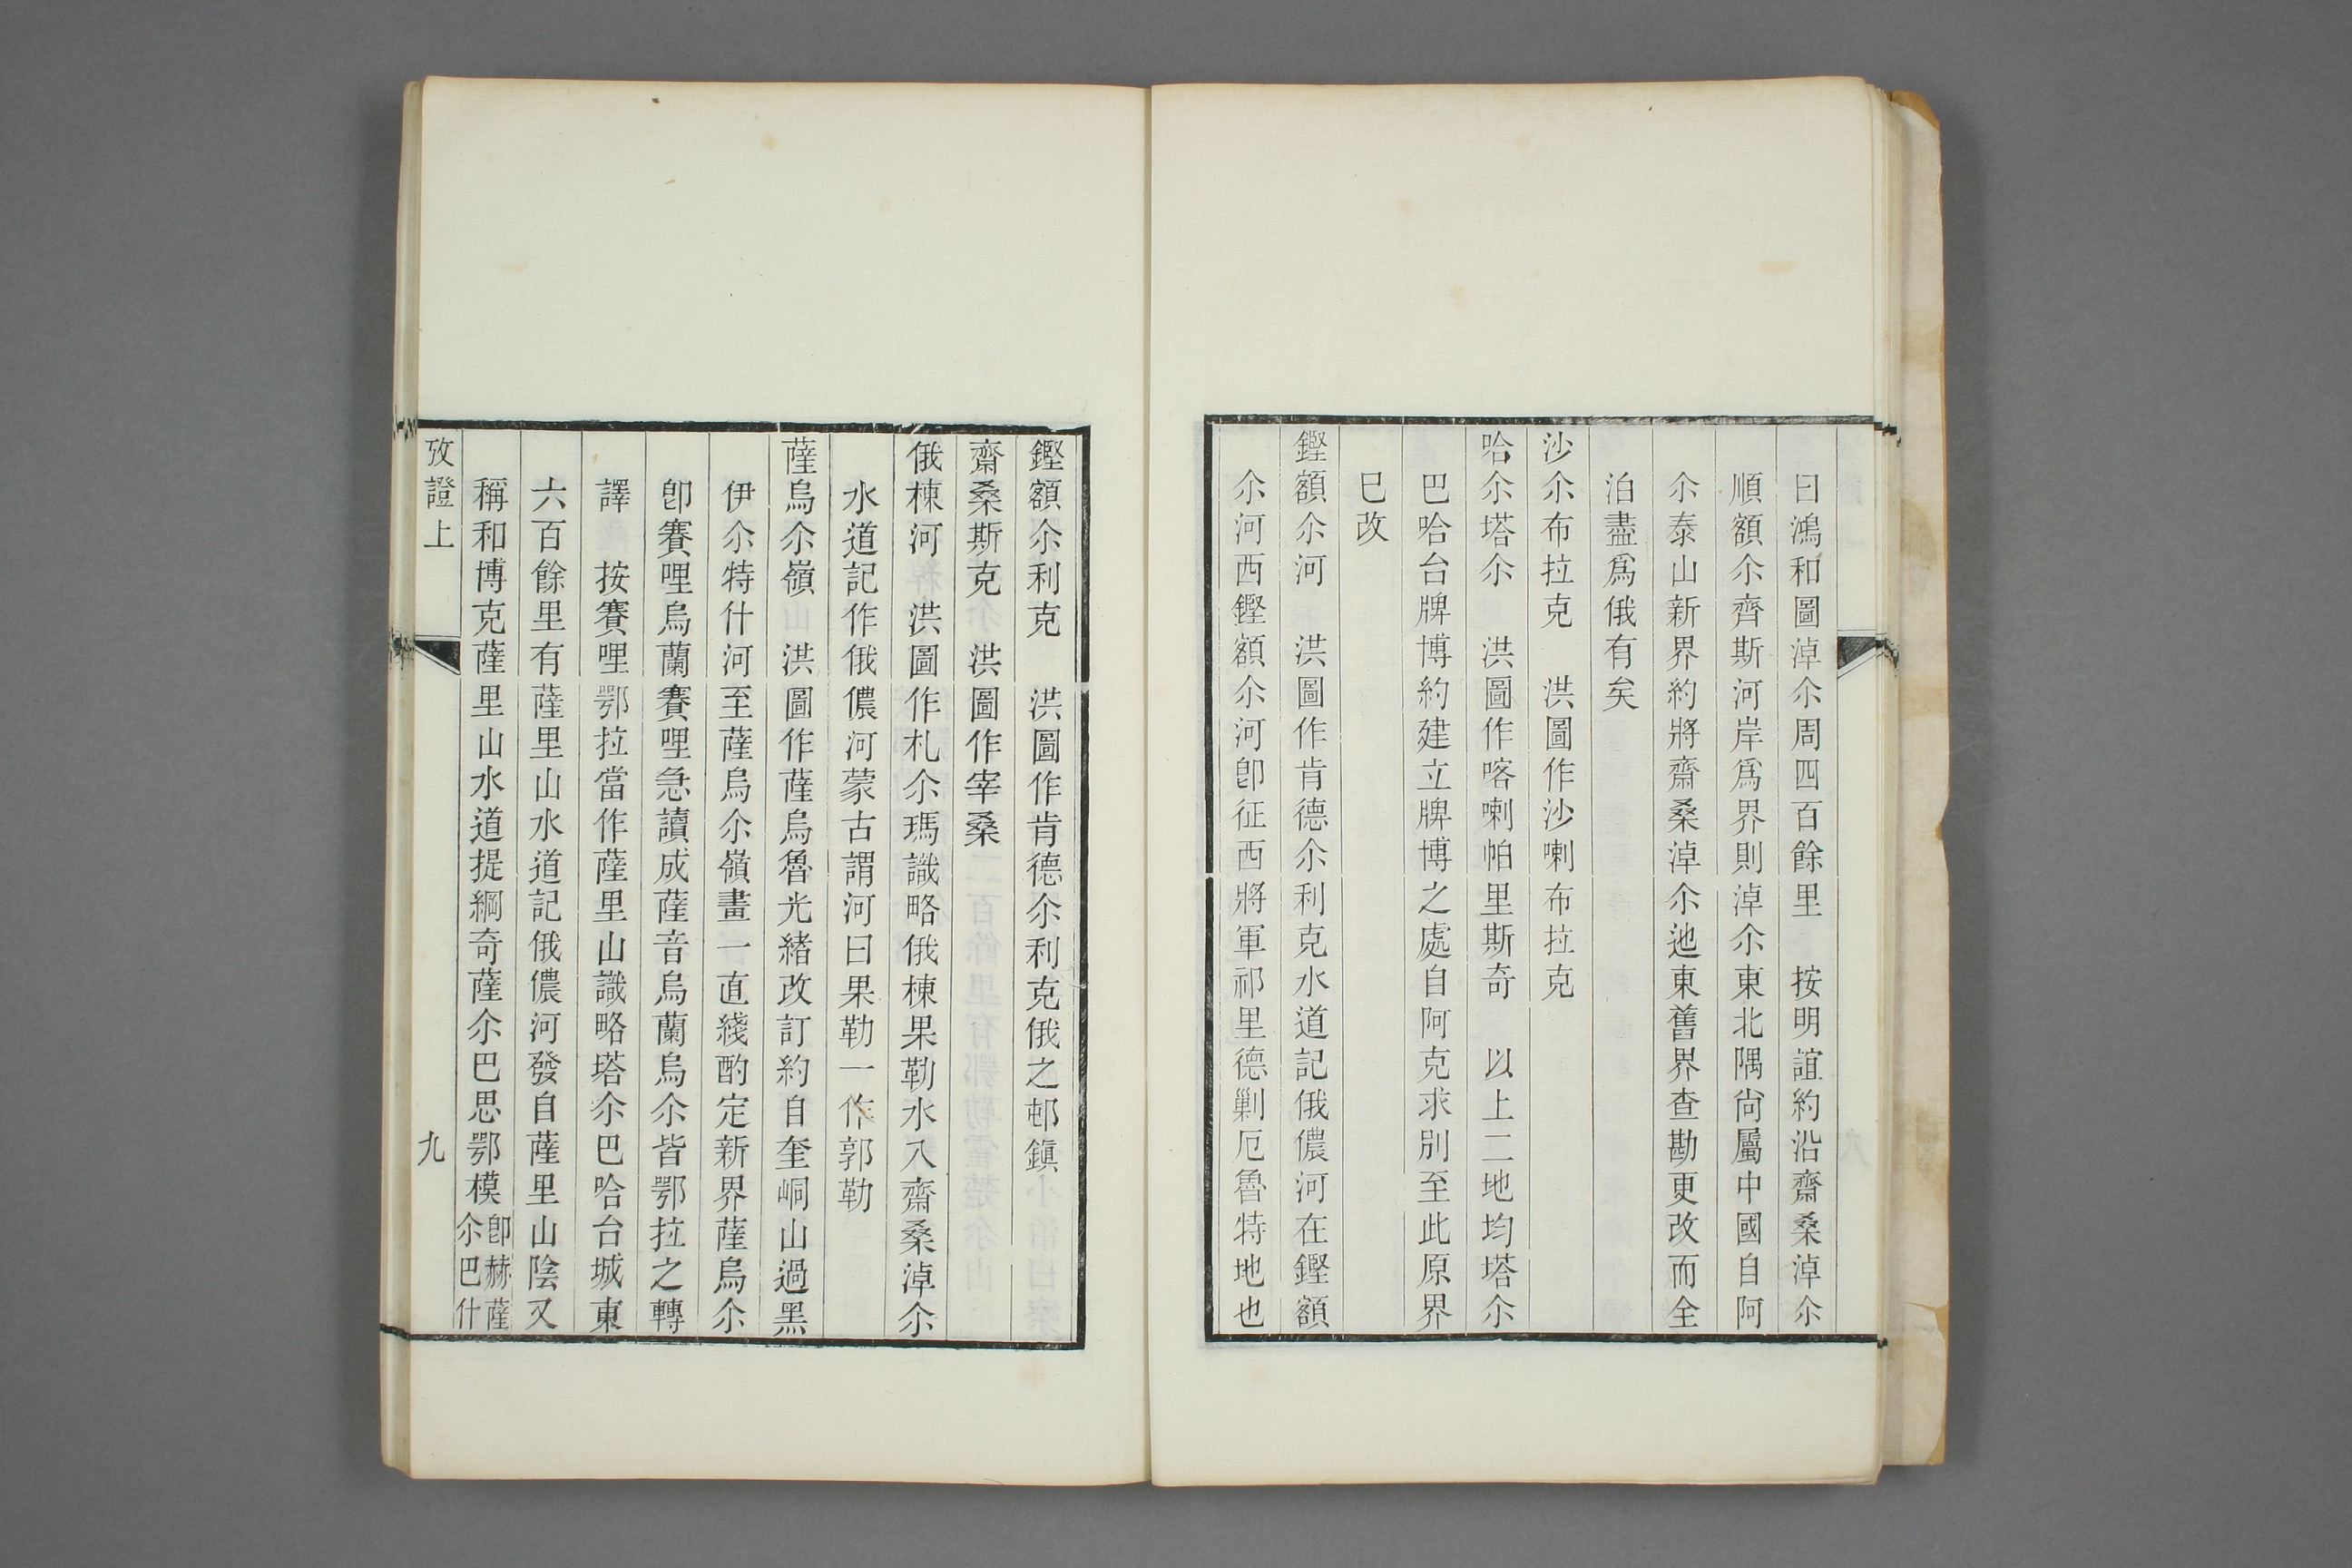 曰鴻和圖淖尒周四百餘里　按明誼約沿齋桑淖尒
順額尒齊斯河岸爲界則淖尒東北隅尙屬中國自阿
尒泰山新界約將齋桑淖尒迆東舊界查勘更改而全
泊盡爲俄有矣
沙尒布拉克　洪圖作沙喇布拉克
哈尒塔尒　洪圖作喀喇帕里斯奇　以上二地均塔尒
巴哈台牌博約建立牌博之處自阿克求別至此原界
巳改
鏗額尒河　洪圖作肯德尒利克水道記俄儂河在鏗額
尒河西鏗額尒河卽征西將軍祁里德剿厄魯特地也
鏗額尒利克　洪圖作肯德尒利克俄之邨鎭
齋桑斯克　洪圖作宰桑
俄棟河　洪圖作札尒瑪識略俄棟果勒水入齋桑淖尒
水道記作俄儂河蒙古謂河曰果勒一作郭勒
薩烏尒嶺　洪圖作薩烏魯光緒改訂約自奎峒山過黑
伊尒特什河至薩烏尒嶺畫一直綫酌定新界薩烏尒
卽賽哩烏蘭賽哩急讀成薩音烏蘭烏尒皆鄂拉之轉
譯　按賽哩鄂拉當作薩里山識略塔尒巴哈台城東
六百餘里有薩里山水道記俄儂河發自薩里山陰又
稱和博克薩里山水道提綱奇薩尒巴思鄂模卽赫薩尒巴什
攷證上
九